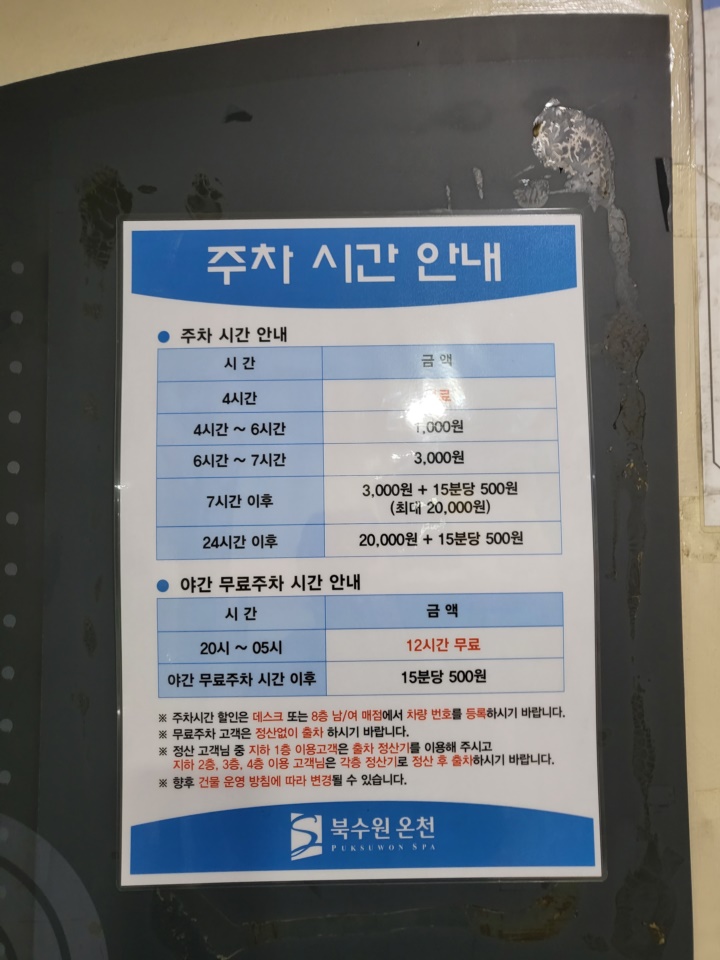 주차 시간 안내
● 주차 시간 안내
시 간 금 액
4시간 료
4시간 ~ 6시간 1,000원
6시간 ~ 7시간 3,000원
7시간 이후 3,000원 + 15분당 500원
(최대 20,000원)
24시간 이후 20,000원 + 15분당 500원
● 야간 무료주차 시간 안내
시 간 금 액
20시 ~ 05시 12시간 무료
야간 무료주차 시간 이후 15분당 500원
※ 주차시간 할인은 데스크 또는 8층 남/여 매점에서 차량 번호를 등록하시기 바랍니다.
※ 무료주차 고객은 정산없이 출차 하시기 바랍니다.
※ 정산 고객님 중 지하 1층 이용고객은 출차 정산기를 이용해 주시고
지하 2층, 3층, 4층 이용 고객님은 각층 정산기로 정산 후 출차하시기 바랍니다.
※ 향후 건물 운영 방침에 따라 변경될 수 있습니다.
북수원 온천
PUKSUWON SPA